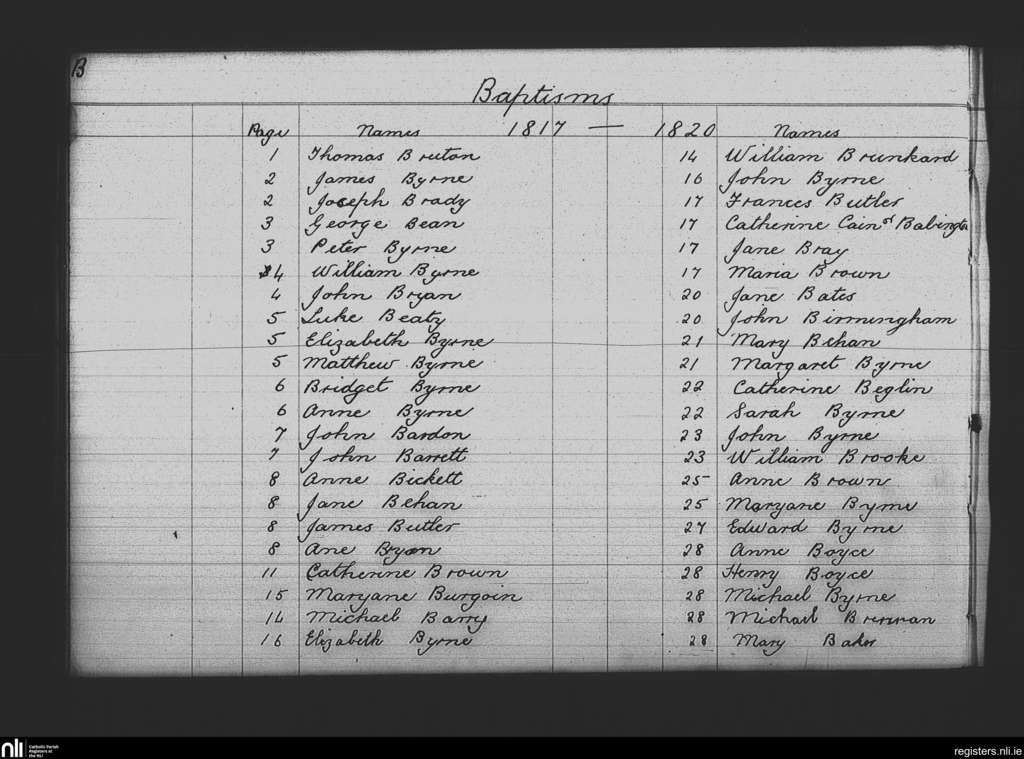 B
Baptisms
Page Names 1817 — 1820 Names
1 Thomas Bruton 14 William Brunkard
2 James Byrne 16 John Byrne
2 Joseph Brady 17 Frances Butler
3 George Bean 17 Catherine Cain or Babington
3 Peter Byrne 17 Jane Bray
4 William Byrne 17 Maria Brown
4 John Bryan 20 Jane Bates
5 Luke Beaty 20 John Birmingham
5 Elizabeth Byrne 21 Mary Behan
5 Matthew Byrne 21 Margaret Byrne
6 Bridget Byrne 22 Catherine Beglin
6 Anne Byrne 22 Sarah Byrne
7 John Bardon 23 John Byrne
7 John Barrett 23 William Brooke
8 Anne Bickett 25 Anne Brown
8 Jane Behan 25 Maryane Byrne
8 James Butler 27 Edward Byrne
8 Ane Bryan 28 Anne Boyce
11 Catherine Brown 28 Henry Boyce
15 Maryane Burgoin 28 Michael Byrne
14 Michael Barry 28 Michael Brennan
16 Elizabeth Byrne 28 Mary Baker
nli Catholic Parish Registers at the NLI
registers.nli.ie